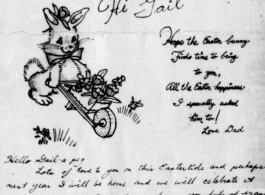 Hi Gail
Hope the Easter bunny
Finds time to bring
to you,
All the Easter happiness
I specially asked
him to!
Love Dad
Hello Gail-a peg
Lots of love to you on this Eastertide and perhaps
next year I will be home and we will celebrate it